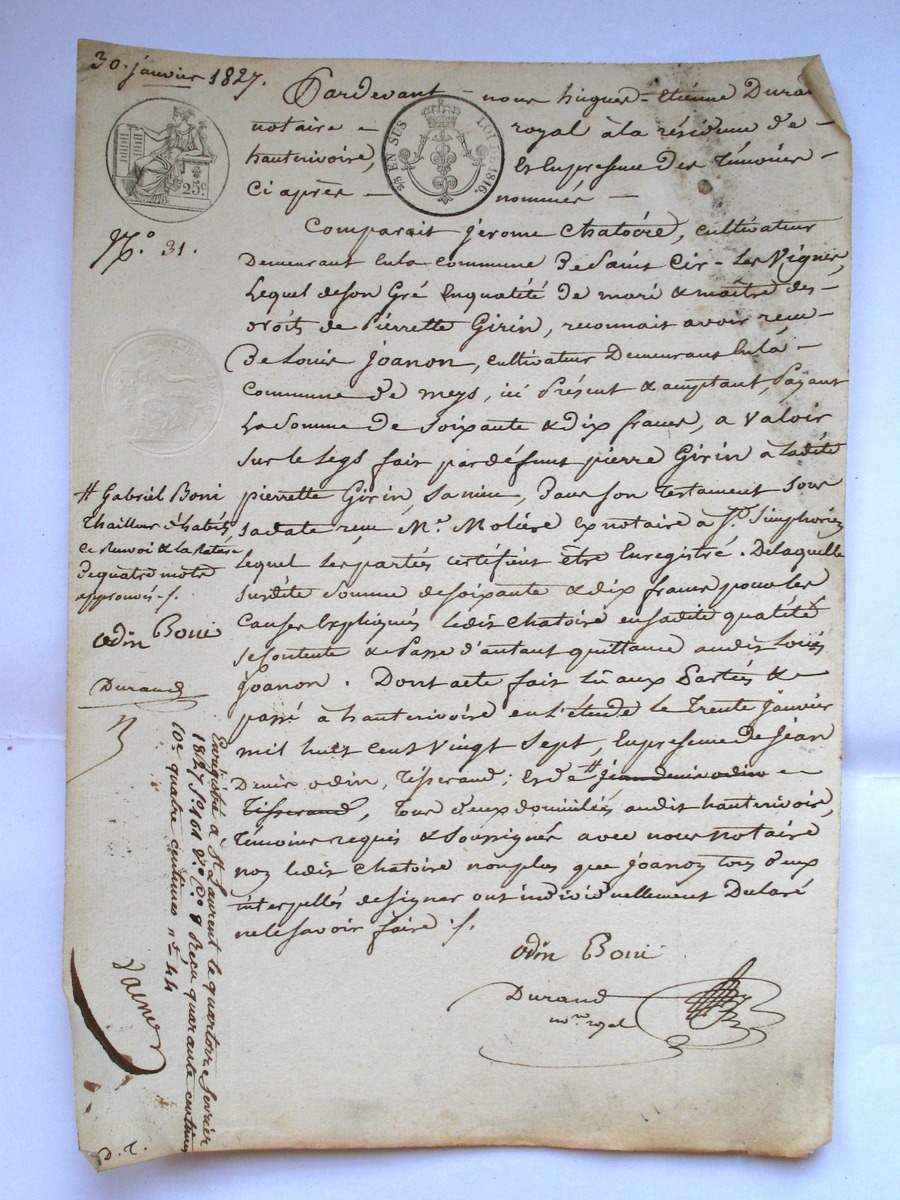 30. janvier 1827.
Pardevant - nous hugues - Etienne Durand
notaire - royal à la résidence de -
hauterivoire, Et En presence des témoins -
Ci après - nommés -
25 c.
2/5 EN SUS LOI DE 1816.
N.º 31.
Comparait jerome Chatoire, cultivateur
Demeurant En la commune De Saint Cir - Les Vignes,
Lequel de son Gré En qualité De mari & maître des -
Droits de Pierrette Girin, reconnait avoir recu -
De Louis Joanon, cultivateur Demeurant En la -
Commune De meys, ici Présent & acceptant, Payant
La Somme De Soixante & dix francs, a Valoir
Sur le Legs fait par défunt pierre Girin à Ladite
pierrette Girin, Sa niece, Dans son testament Sous
sa date recu Mr. Moliere Ex notaire à St. Simphorien
Lequel Les parties certifient être Enregistré. De laquelle
Susdite Somme de soixante & dix francs pour les
Causes Expliqués Ledit Chatoire en sadite qualité
se Contente & Passe d'autant quittance audit Louis
Joanon. Dont acte fait lû aux Parties &
passé à hauterivoire en l'étude le Trente Janvier
mil huit cent Vingt Sept, En presence de Jean
Denis odin, Tisserand; Et de # jean denis odin -
Tisserand, Tous deux domiciliés audit hauterivoire,
Témoins requis & Soussignés avec nous notaire
non Ledit Chatoire non plus que Joanon tous deux
interpellés de signer ont individuellement Déclaré
ne le Savoir faire ./.
odin Boni
Durand
nore royal
# Gabriel Boni
thailleur d'habits,
Ce Renvoi & La Rature
De quatre mots
approuvés ./.
odin Boni
Durand
Enrégistré à St Laurent le quatorze Fevrier
1827 Fo. 161 Vo. Co 8 Recu quarante centimes
10e quatre centimes no 44
D. T.